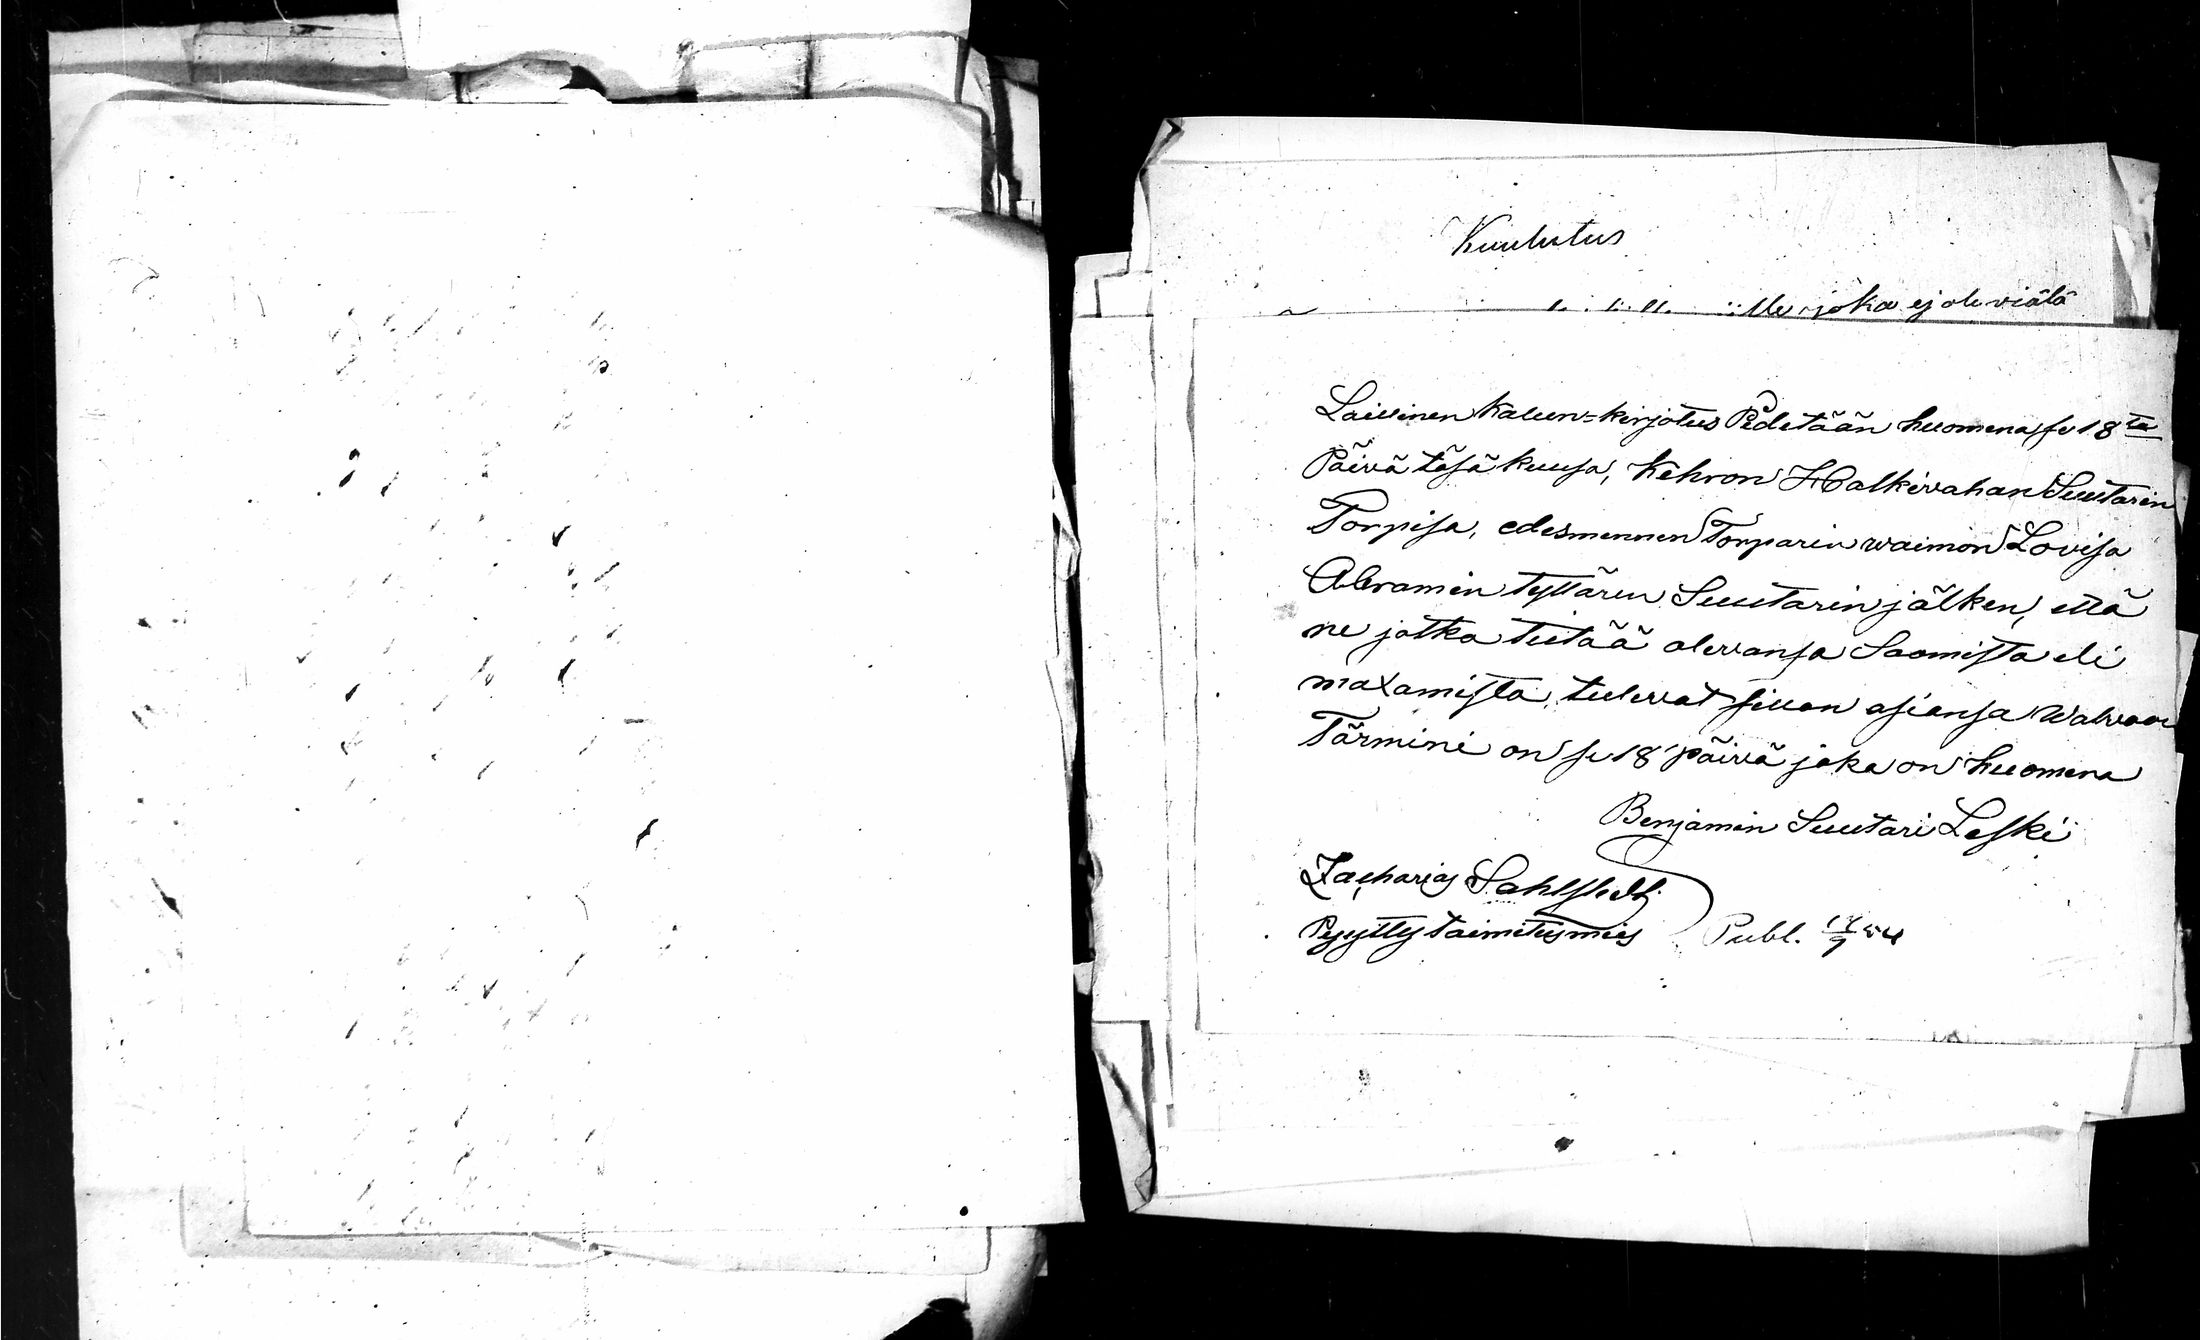 Kuulutus
joka ej ole viälä
Laillinen kaluun-kirjotus Pidetään huomena se 18 ta
Päivä täsä kuusa, Kehron Halkivahan Suutarin
Torpisa, edesmennen Torparin waimon Lovisa
Abramin tyttären Suutarin jälken, että
ne jotka tietää olevansa Saomista eli
maxamista, tulevat sillon asiansa Walvoon
Tärmini on se 18 päivä joka on huomena
Benjamin Suutari Leski
Zacharias Sahlstedt
Pyytty taimitusmies Publ.